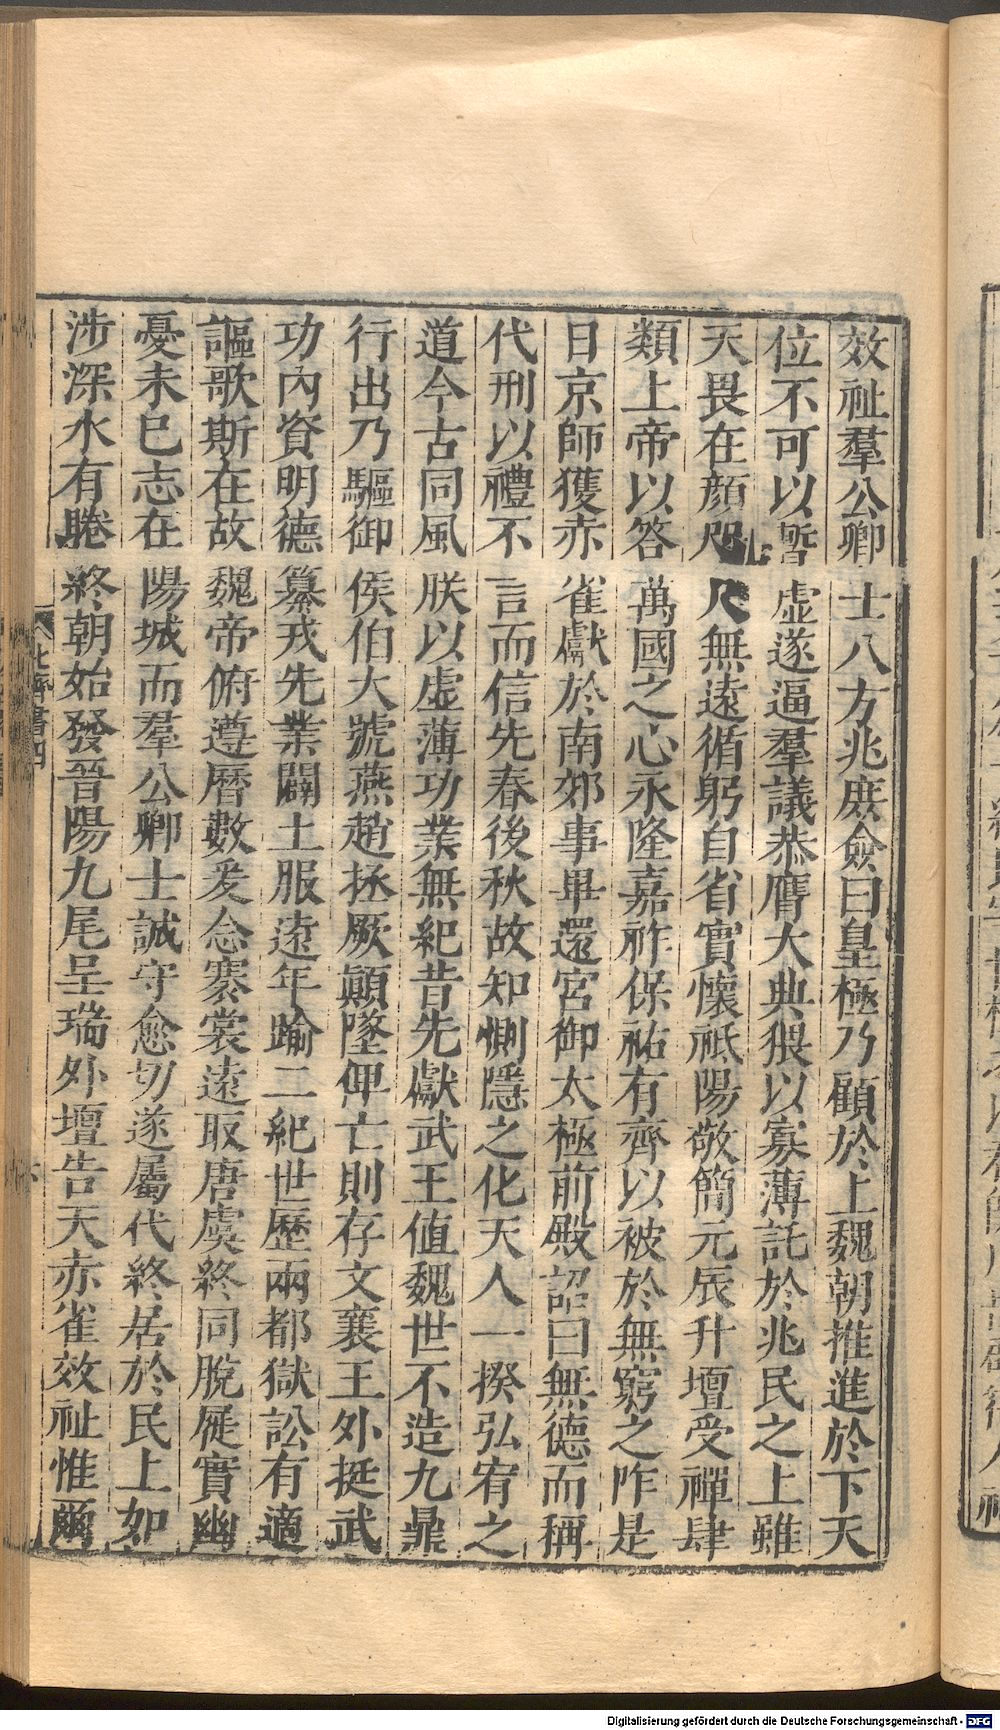 效祉羣公卿士八方兆庶僉曰皇極乃顧於上魏朝推進於下天
位不可以暫虛遂逼羣議恭膺大典猥以寡薄託於兆民之上雖
天畏在顏咫尺無遠循躬自省實懷祗陽敬簡元辰升壇受禪肆
類上帝以答萬國之心永隆嘉祚保祐有齊以被於無窮之祚是
日京師獲赤雀獻於南郊事畢還宮御太極前殿詔曰無德而稱
代刑以禮不言而信先春後秋故知惻隱之化天人一揆弘宥之
道今古同風朕以虛薄功業無紀昔先獻武王值魏世不造九鼎
行出乃驅御侯伯大號燕趙拯厥顛墜俾亡則存文襄王外挺武
功內資明德纂戎先業闢土服遠年踰二紀世歷兩都獄訟有適
謳歌斯在故魏帝俯遵曆數爰念褰裳遠取唐虞終同脫屣實幽
憂未已志在陽城而羣公卿士誠守愈切遂屬代終居於民上如
涉深水有睠終朝始發晉陽九尾呈瑞外壇告天赤雀效祉惟爾
北齊書四
Digitalisierung gefördert durch die Deutsche Forschungsgemeinschaft - DFG